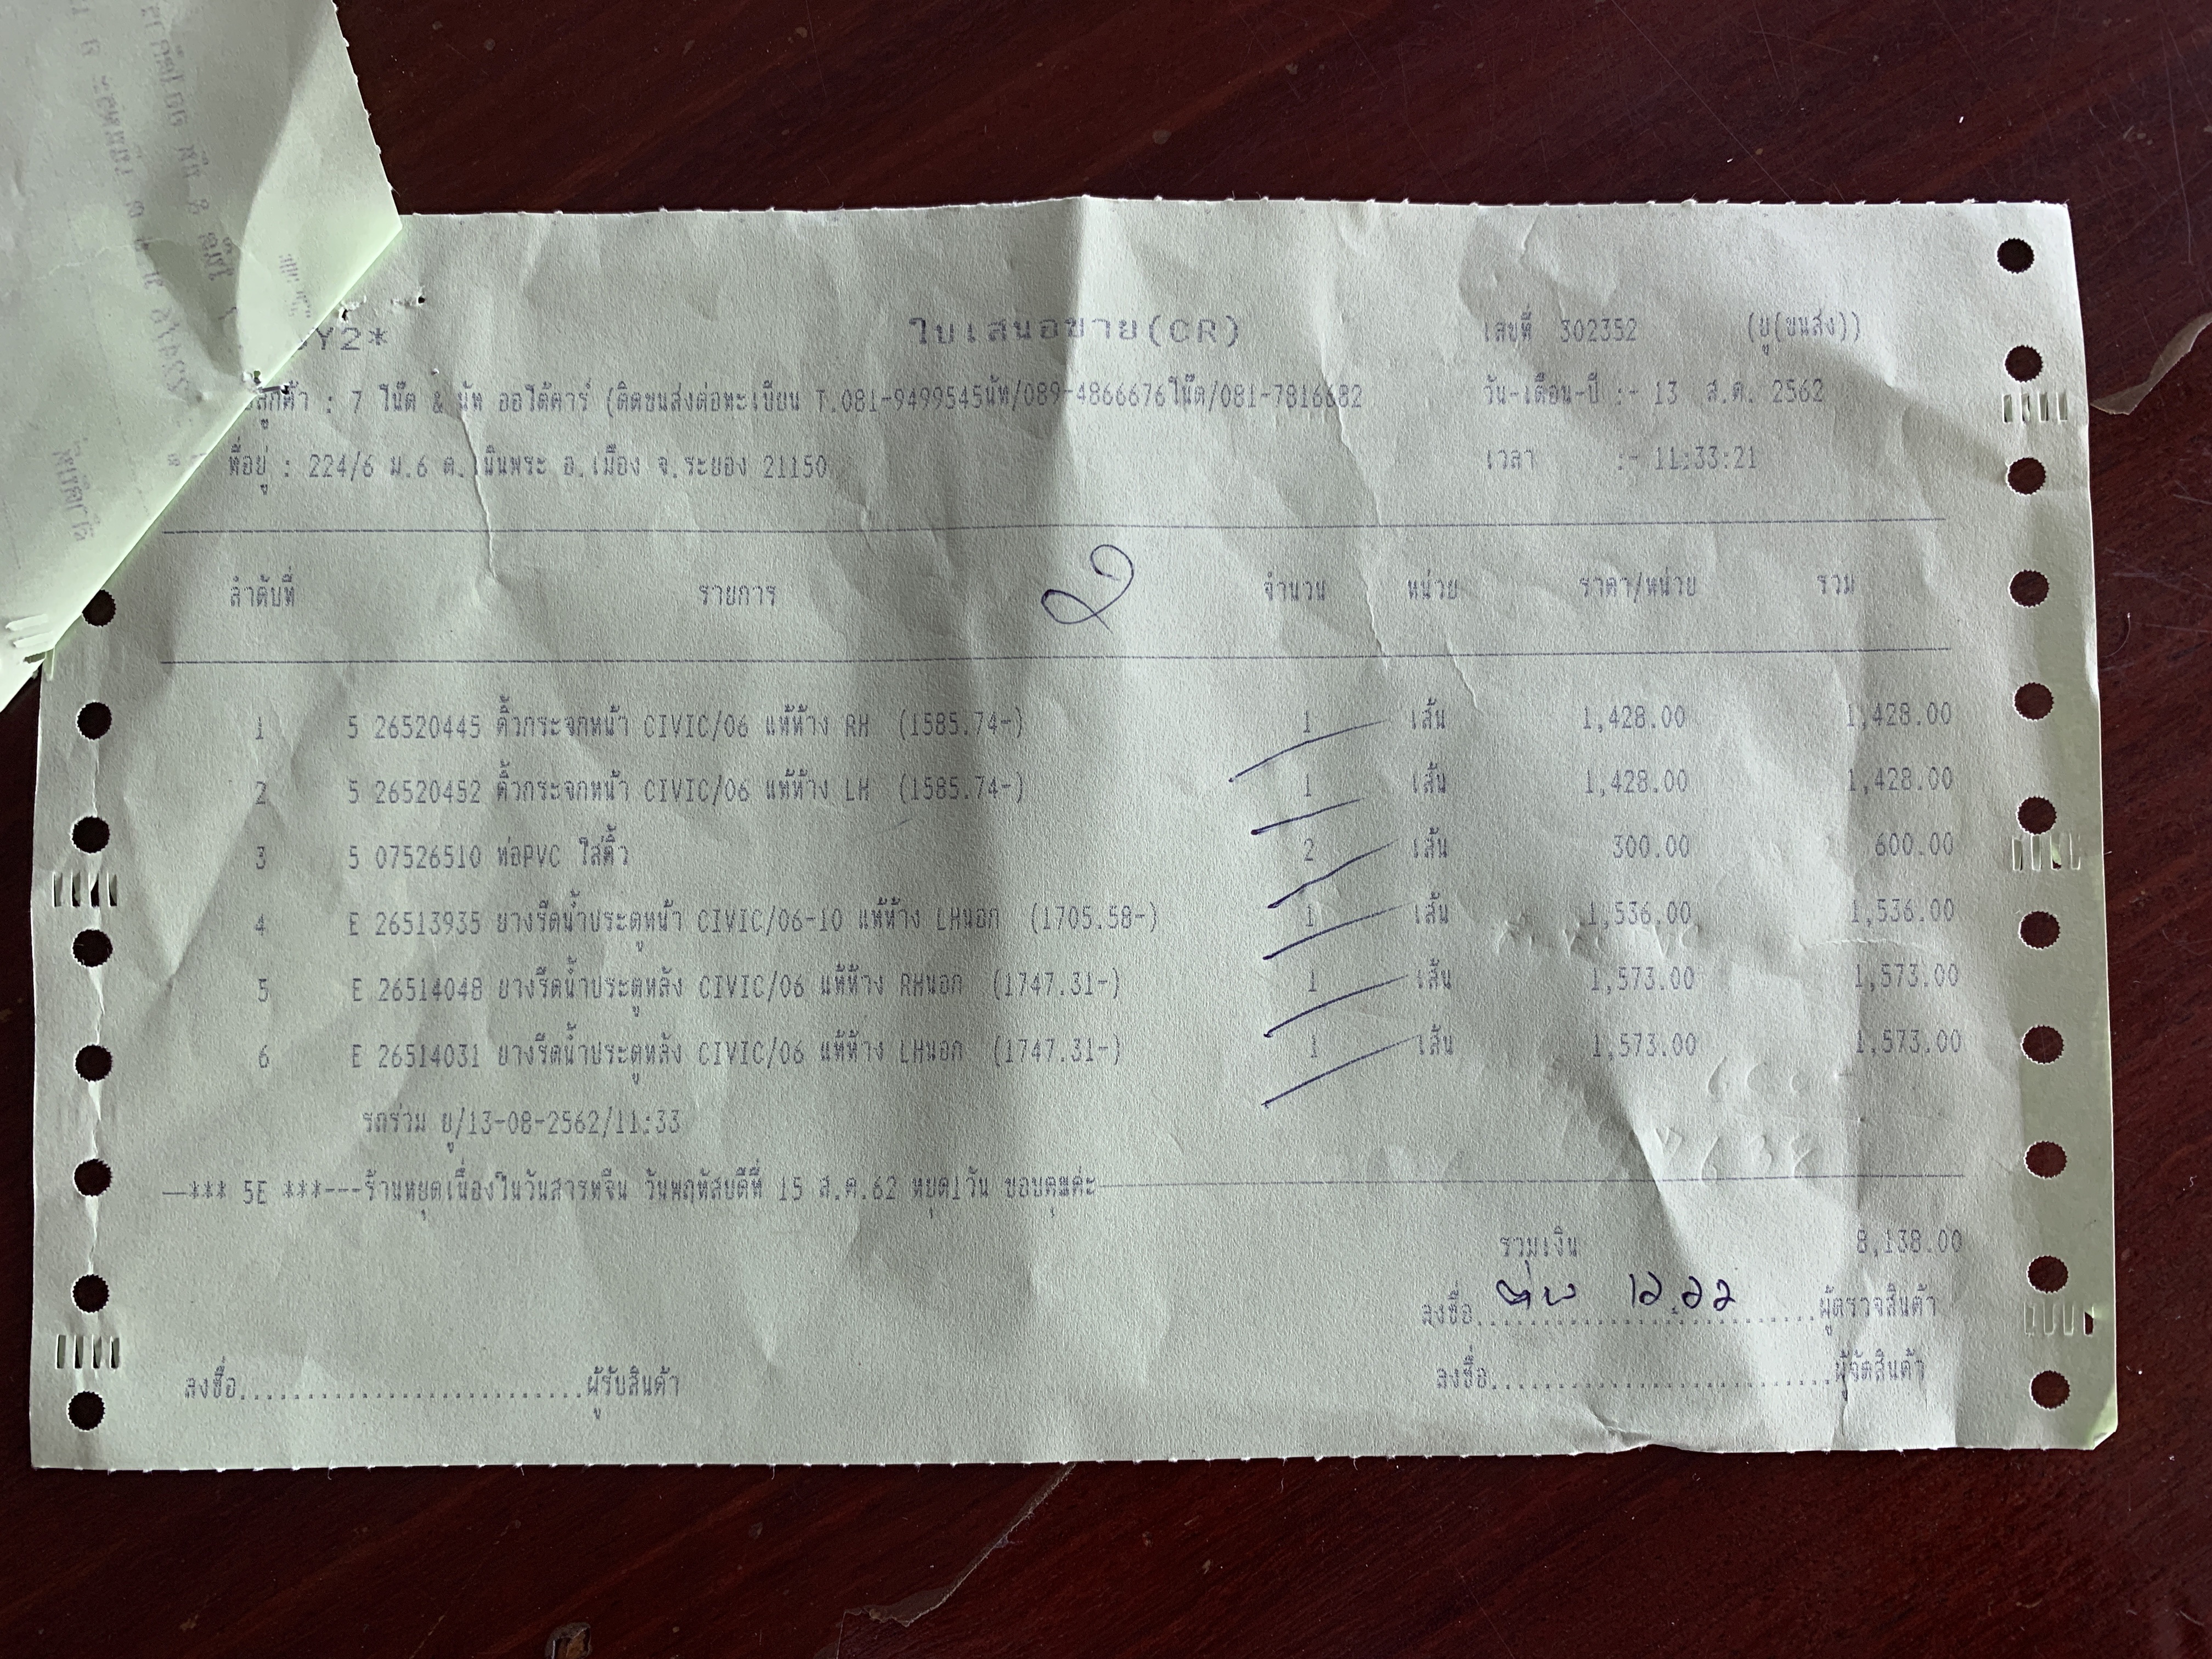 Y2*
ใบเสนอขาย(CR)
เลขที่ 302352 (ยู(ขนส่ง))
ลูกค้า : 7 โน๊ต & นัท ออโต้คาร์ (ติดขนส่งต่อทะเบียน T.081-9499545นัท/089-4866676โน๊ต/081-7816682
วัน-เดือน-ปี :- 13 ส.ค. 2562
ที่อยู่ : 224/6 ม.6 ต.เนินพระ อ.เมือง จ.ระยอง 21150
เวลา :- 11:33:21
2
ลำดับที่ รายการ จำนวน หน่วย ราคา/หน่วย รวม
1 5 26520445 คิ้วกระจกหน้า CIVIC/06 แท้ห้าง RH (1585.74-) 1 เส้น 1,428.00 1,428.00
2 5 26520452 คิ้วกระจกหน้า CIVIC/06 แท้ห้าง LH (1585.74-) 1 เส้น 1,428.00 1,428.00
3 5 07526510 ท่อPVC ใส่คิ้ว 2 เส้น 300.00 600.00
4 E 26513935 ยางรีดน้ำประตูหน้า CIVIC/06-10 แท้ห้าง LHนอก (1705.58-) 1 เส้น 1,536.00 1,536.00
5 E 26514048 ยางรีดน้ำประตูหลัง CIVIC/06 แท้ห้าง RHนอก (1747.31-) 1 เส้น 1,573.00 1,573.00
6 E 26514031 ยางรีดน้ำประตูหลัง CIVIC/06 แท้ห้าง LHนอก (1747.31-) 1 เส้น 1,573.00 1,573.00
รถร่วม ยู/13-08-2562/11:33
*** 5E ***---ร้านหยุดเนื่องในวันสารทจีน วันพฤหัสบดีที่ 15 ส.ค.62 หยุด1วัน ขอบคุณค่ะ
รวมเงิน 8,138.00
ลงชื่อ..........................ผู้ตรวจสินค้า
ลงชื่อ..........................ผู้รับสินค้า
ลงชื่อ..........................ผู้จัดสินค้า